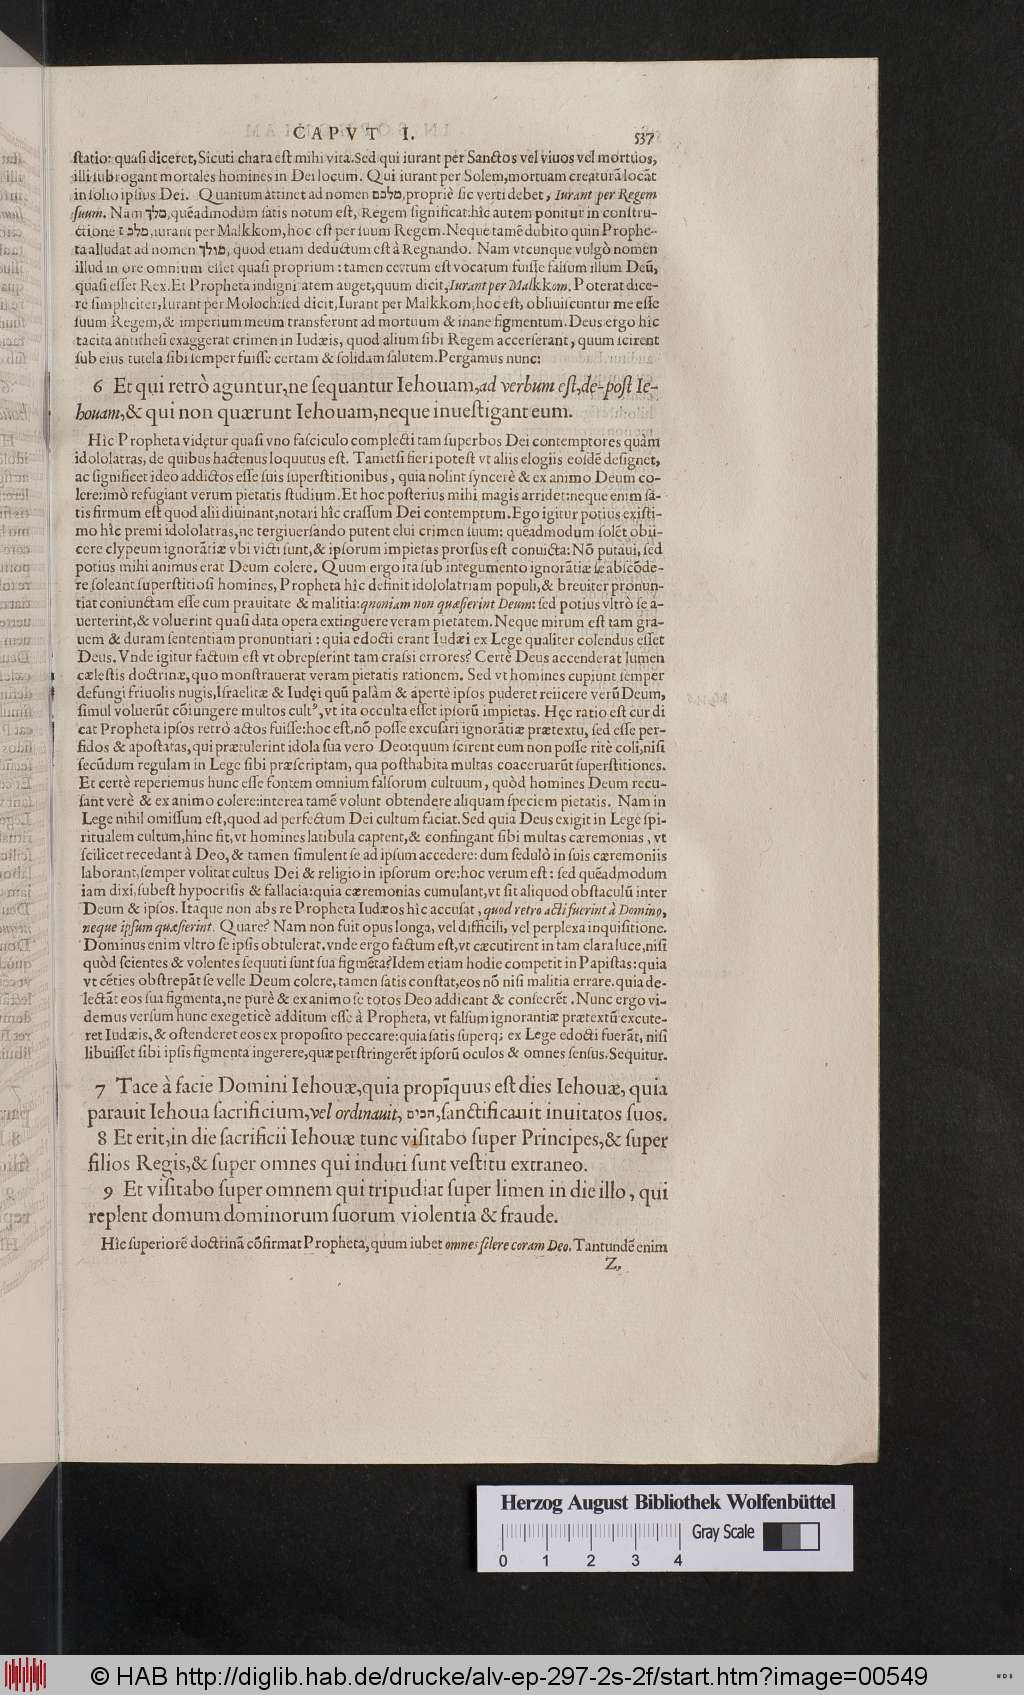 CAPVT I. 537
ſtatio: quaſi diceret, Sicuti chara eſt mihi vita. Sed qui iurant per Sanctos vel viuos vel mortuos,
illi ſubrogant mortales homines in Dei locum. Qui iurant per Solem, mortuam creaturā locāt
in ſolio ipſius Dei. Quantum attinet ad nomen מלכם, propriè ſic verti debet, Iurant per Regem
ſuum. Nam מלך, quēadmodum ſatis notum eſt, Regem ſignificat: hîc autem ponitur in conſtru-
ctione iurant per Malkkom, hoc eſt per ſuum Regem. Neque tamē dubito quin Prophe-
ta alludat ad nomen מולך, quod etiam deductum eſt à Regnando. Nam vtcunque vulgò nomen
illud in ore omnium eſſet quaſi proprium: tamen certum eſt vocatum fuiſſe falſum illum Deū,
quaſi eſſet Rex. Et Propheta indignitatem auget, quum dicit, Iurant per Malkkom. Poterat dice-
re ſimpliciter, Iurant per Moloch: ſed dicit, Iurant per Malkkom, hoc eſt, obliuiſcuntur me eſſe
ſuum Regem, & imperium meum transferunt ad mortuum & inane figmentum. Deus ergo hîc
tacita antitheſi exaggerat crimen in Iudæis, quod alium ſibi Regem accerſerant, quum ſcirent
ſub eius tutela ſibi ſemper fuiſſe certam & ſolidam ſalutem. Pergamus nunc:
6 Et qui retrò aguntur, ne ſequantur Iehouam, ad verbum eſt, de-poſt Ie-
houam, & qui non quærunt Iehouam, neque inueſtigant eum.
Hîc Propheta videtur quaſi vno faſciculo complecti tam ſuperbos Dei contemptores quàm
idololatras, de quibus hactenus loquutus eſt. Tametſi fieri poteſt vt aliis elogiis eoſdē deſignet,
ac ſignificet ideo addictos eſſe ſuis ſuperſtitionibus, quia nolint ſyncerè & ex animo Deum co-
lere: imò refugiant verum pietatis ſtudium. Et hoc poſterius mihi magis arridet: neque enim ſa-
tis firmum eſt quod alii diuinant, notari hîc craſſum Dei contemptum. Ego igitur potius exiſti-
mo hîc premi idololatras, ne tergiuerſando putent elui crimen ſuum: quēadmodum ſolēt obii-
cere clypeum ignorātiæ vbi victi ſunt, & ipſorum impietas prorſus eſt conuicta: Nō putaui, ſed
potius mihi animus erat Deum colere. Quum ergo ita ſub integumento ignorātiæ ſe abſcōde-
re ſoleant ſuperſtitioſi homines, Propheta hîc definit idololatriam populi, & breuiter pronun-
tiat coniunctam eſſe cum prauitate & malitia: quoniam non quæſierint Deum: ſed potius vltrò ſe a-
uerterint, & voluerint quaſi data opera extinguere veram pietatem. Neque mirum eſt tam gra-
uem & duram ſententiam pronuntiari: quia edocti erant Iudæi ex Lege qualiter colendus eſſet
Deus. Vnde igitur factum eſt vt obrepſerint tam craſſi errores? Certè Deus accenderat lumen
cæleſtis doctrinæ, quo monſtrauerat veram pietatis rationem. Sed vt homines cupiunt ſemper
defungi friuolis nugis, Iſraelitæ & Iudęi quū palàm & apertè ipſos puderet reiicere verū Deum,
ſimul voluerūt cōiungere multos cultꝰ, vt ita occulta eſſet ipſorū impietas. Hęc ratio eſt cur di
cat Propheta ipſos retrò actos fuiſſe: hoc eſt, nō poſſe excuſari ignorātiæ prætextu, ſed eſſe per-
fidos & apoſtatas, qui prætulerint idola ſua vero Deo: quum ſcirent eum non poſſe ritè coli, niſi
ſecūdum regulam in Lege ſibi præſcriptam, qua poſthabita multas coaceruarūt ſuperſtitiones.
Et certè reperiemus hunc eſſe fontem omnium falſorum cultuum, quòd homines Deum recu-
ſant verè & ex animo colere: interea tamē volunt obtendere aliquam ſpeciem pietatis. Nam in
Lege nihil omiſſum eſt, quod ad perfectum Dei cultum faciat. Sed quia Deus exigit in Lege ſpi-
ritualem cultum, hinc fit, vt homines latibula captent, & confingant ſibi multas cæremonias, vt
ſcilicet recedant à Deo, & tamen ſimulent ſe ad ipſum accedere: dum ſedulò in ſuis cæremoniis
laborant, ſemper volitat cultus Dei & religio in ipſorum ore: hoc verum eſt: ſed quēadmodum
iam dixi, ſubeſt hypocriſis & fallacia: quia cæremonias cumulant, vt ſit aliquod obſtaculū inter
Deum & ipſos. Itaque non abs re Propheta Iudæos hîc accuſat, quod retro acti fuerint à Domino,
neque ipſum quæſierint. Quare? Nam non fuit opus longa, vel difficili, vel perplexa inquiſitione.
Dominus enim vltro ſe ipſis obtulerat. vnde ergo factum eſt, vt cæcutirent in tam clara luce, niſi
quòd ſcientes & volentes ſequuti ſunt ſua figmēta? Idem etiam hodie competit in Papiſtas: quia
vt cēties obſtrepāt ſe velle Deum colere, tamen ſatis conſtat, eos nō niſi malitia errare. quia de-
lectāt eos ſua figmenta, ne purè & ex animo ſe totos Deo addicant & conſecrēt. Nunc ergo vi-
demus verſum hunc exegeticè additum eſſe à Propheta, vt falſum ignorantiæ prætextū excute-
ret Iudæis, & oſtenderet eos ex propoſito peccare: quia ſatis ſuperq; ex Lege edocti fuerāt, niſi
libuiſſet ſibi ipſis figmenta ingerere, quæ perſtringerēt ipſorū oculos & omnes ſenſus. Sequitur.
7 Tace à facie Domini Iehouæ, quia propīquus eſt dies Iehouæ, quia
parauit Iehoua ſacrificium, vel ordinauit, הכים, ſanctificauit inuitatos ſuos.
8 Et erit, in die ſacrificii Iehouæ tunc viſitabo ſuper Principes, & ſuper
filios Regis, & ſuper omnes qui induti ſunt veſtitu extraneo.
9 Et viſitabo ſuper omnem qui tripudiat ſuper limen in die illo, qui
replent domum dominorum ſuorum violentia & fraude.
Hîc ſuperiorē doctrinā cōfirmat Propheta, quum iubet omnes ſilere coram Deo. Tantundē enim
Z,
Herzog August Bibliothek Wolfenbüttel
Gray Scale
0 1 2 3 4
© HAB http://diglib.hab.de/drucke/alv-ep-297-2s-2f/start.htm?image=00549